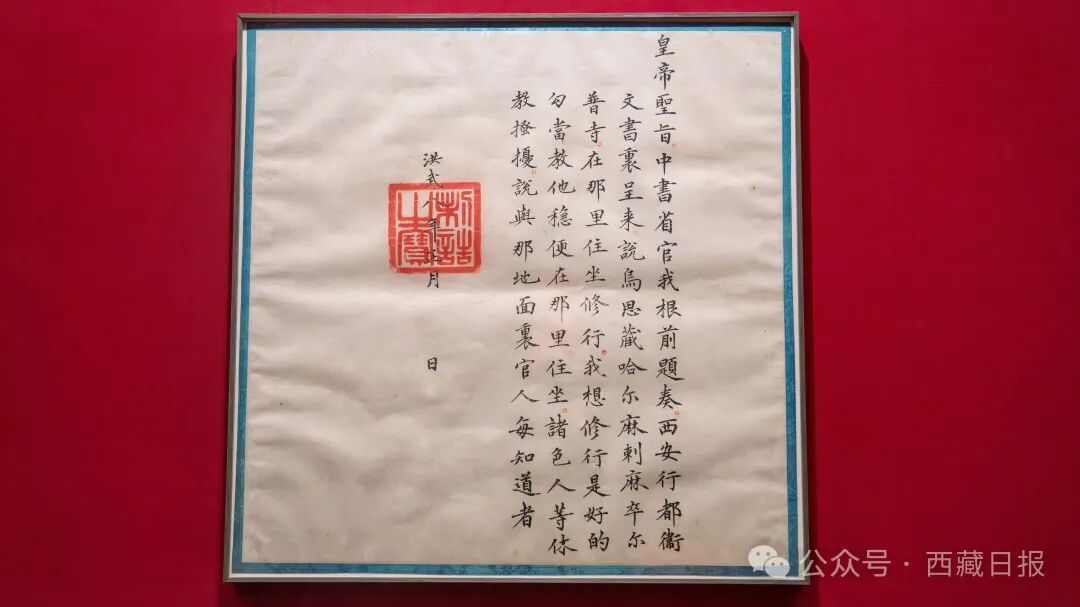 皇帝聖旨中書省官我根前題奏西安行都衞
文書裏呈来說烏思藏哈尔麻剌麻卒尔
普寺在那里住坐修行我想修行是好的
勾當教他穏便在那里住坐諸色人等休
教搔擾說與那地面裏官人每知道者
洪武八年正月 日
制誥之寶
公众号·西藏日报